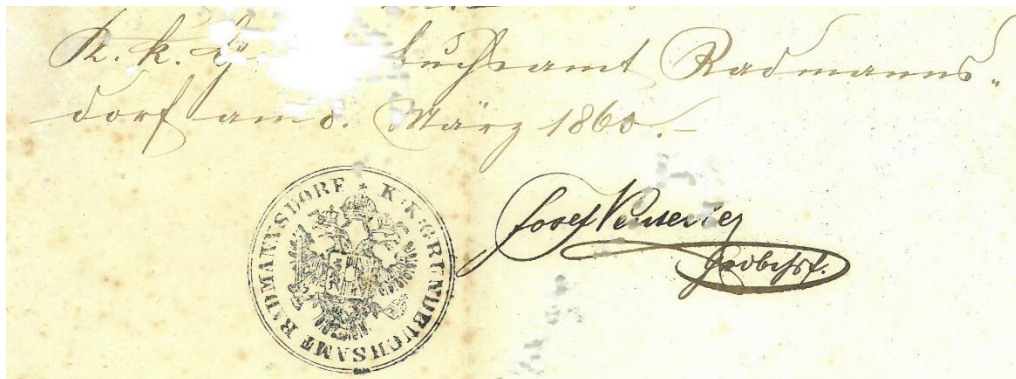 K. k. G buchsamt Radmanns-
dorf am 8. März 1860.-
K. K. GRUNDBUCHSAMT RADMANNSDORF
Josef